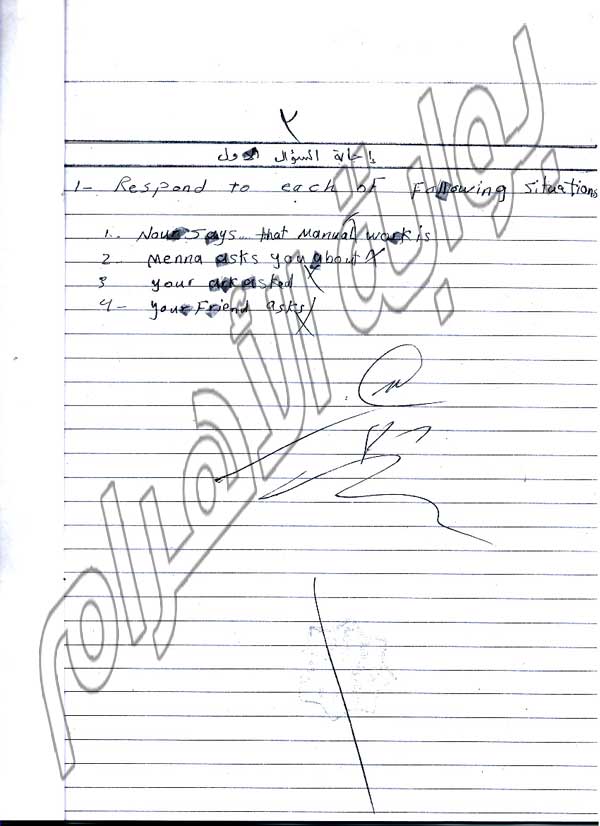 ٢
إجابة السؤال الأول
1- Respond to each of Following situations
1. Nour Says that Manual work is
2 Menna asks you about
3 your are asked
4- your Friend asks
بوابة الأهرام